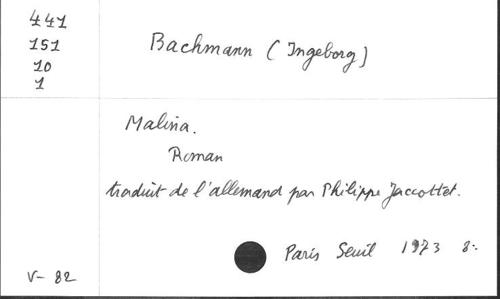 441
151
10
1
Bachmann (Ingeborg)
Malina.
Roman
traduit de l'allemand par Philippe Jaccottet.
Paris Seuil 1973 8:
V- 82